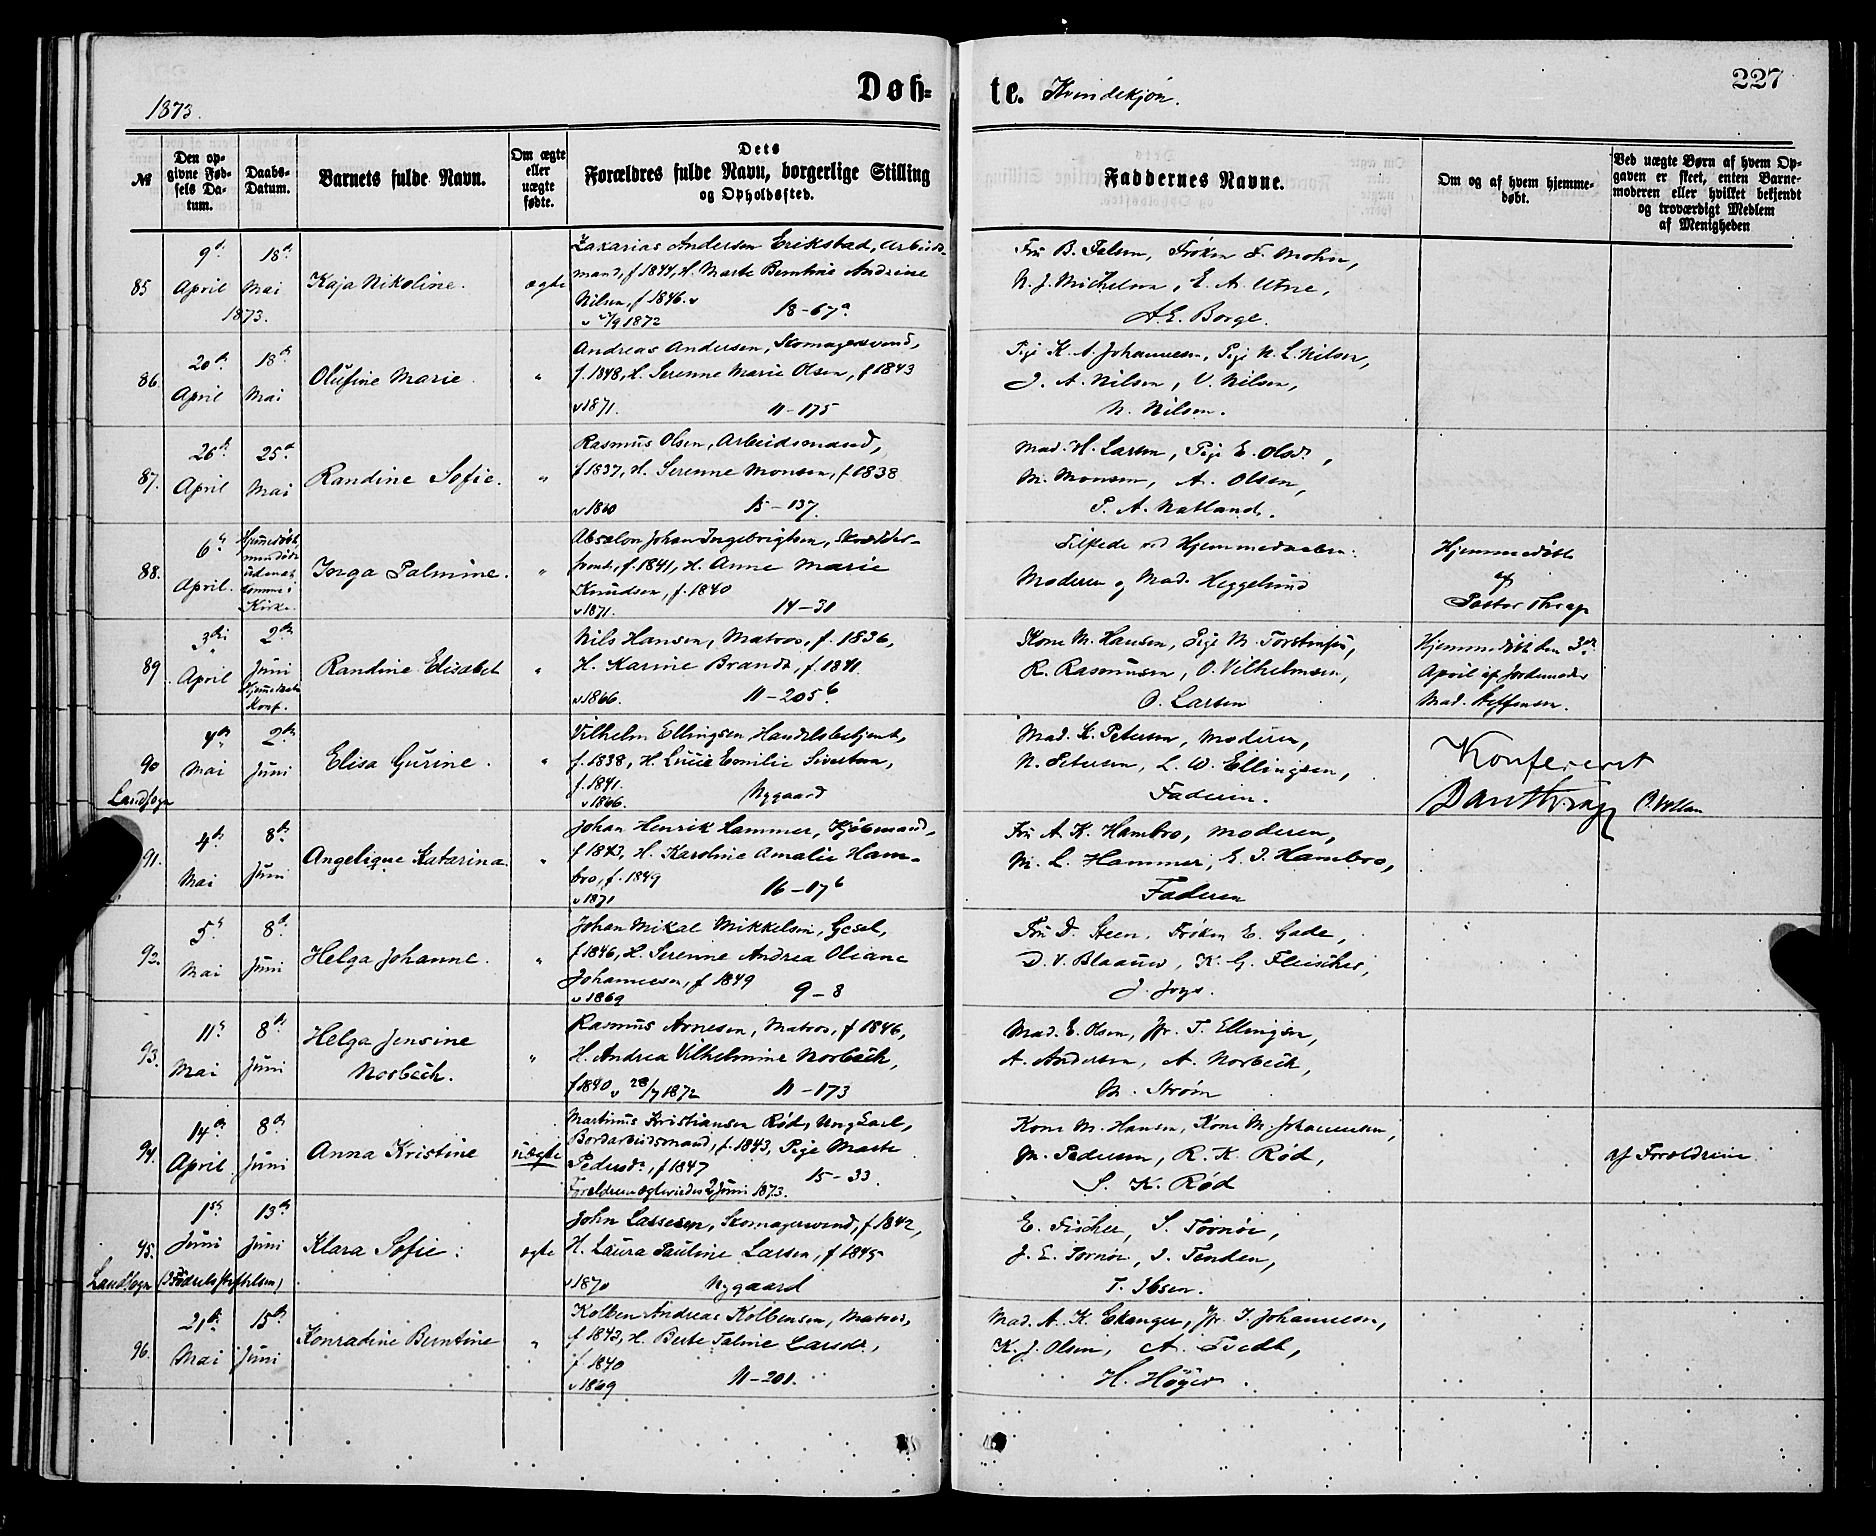 1873.
Døb-
te. Kvindekjøn.
227
№
Den op-
givne Fød-
sels Da-
tum.
Daabs-
Datum.
Barnets fulde Navn.
Om ægte
eller
uægte
fødte.
Dets
Forældres fulde Navn, borgerlige Stilling
og Opholdssted.
Faddernes Navne.
Om og af hvem hjemme-
døbt.
Ved uægte Børn af hvem Op-
gaven er skeet, enten Barne-
moderen eller hvilket bekjendt
og troværdigt Medlem
af Menigheden
85
9d. April
18d. Mai
1873.
Kaja Nikoline.
ægte
Zakarias Andersen Erikstad, Arbeids-
mand, f 1844, H. Marte Berntine Andrine
Nilsen, f 1846. v
18-67a
Fru B. Falsen, Frøken F. Mohn,
N. J. Michelsen, E. A. Utne,
A. E. Borge.
86.
20de April
18de Mai
Olufine Marie.
"
Andreas Andersen, Skomagersvend,
f. 1848, H. Serenne Marie Olsen, f 1843
v 1871. 11-175
Pige K. A. Johannesen, Pige N. L. Nilsen,
J. A. Nilsen, V. Nilsen,
N. Nilsen.
87.
26de April
25d. Mai
Randine Sofie.
"
Rasmus Olsen, Arbeidsmand,
f 1837, H. Serenne Monsen, f 1838
v 1860 15-137.
Mad. H. Larsen, Pige E. Olsdr,
M. Monsen, A. Olsen,
P. A. Natland.
88.
6te April.
Hjemmedøbt
men døde
uden at
komme i
Kirke.
Inga Palmine.
"
Absalon Johan Ingebrigtsen, Skrædder-
svend, f. 1841, H. Anne Marie
Knudsen, f. 1840
v 1871. 14-31
Tilstede ved Hjemmedaaben:
Moderen og Mad. Heggelund
Hjemmedøbt
af
Pastor Thrap
89
3die April
2den Juni
Hjemmedaab
Konf.
Randine Elisabet
"
Nils Hansen, Matros, f. 1836,
H. Karine Brandt, f. 1841.
v 1866. 11-205b
Kone M. Hansen, Pige M. Torstensen,
R. Rasmusen, O. Vilhelmsen,
O. Larsen
Hjemmedøbt den 3die
April af Jordemoder
Mad. Steffensen.
90
Landsogn
4de Mai
2den Juni
Elisa Gurine.
"
Vilhelm Ellingsen Handelsbetjent,
f. 1838, H. Lucie Emilie Sivertsen,
f. 1841.
v 1866. Nygaard
Mad. K. Petersen, Moderen,
N. Petersen, L. W. Ellingsen,
Faderen.
Konfereret
Dan Thrap O. Vollan
91.
4de Mai
8de Juni
Angelique Katarina
"
Johan Henrik Hammer, Kjøbmand,
f 1843, H. Karoline Amalie Ham-
bro, f. 1849
v 1871 16-17b
Fru A. K. Hambro, Moderen,
M. L. Hammer, E. I. Hambro,
Faderen
92.
5te Mai
8d. Juni
Helga Johanne.
"
Johan Mikal Mikkelsen, Gesel,
f 1846, H. Serenne Andrea Oliane
Johannesen, f 1849
v 1869 9-8
Fru D. Steen, Frøken E. Gade,
D. V. Blaauw, K. G. Fleischer,
J. Joys.
93.
11te Mai
8de Juni
Helga Jensine
Norbech.
"
Rasmus Arnesen, Matros, f 1846,
H. Andrea Vilhelmine Norbech,
f 1840 v 28/7 1872 11-173
Mad. E. Olsen, Jfr. T. Ellingsen,
A. Andersen, A. Norbech,
M. Strøm
94.
14de April
8de Juni
Anna Kristine
uægte
Martinus Kristiansen Rød, Ungkarl,
Bordarbeidsmand, f. 1843, Pige Marte
Pedersdr, f 1847 15-33.
Forældrene ægteviedes 2 Juni 1873.
Kone M. Hansen, Kone M. Johannesen,
M. Pedersen, R. K. Rød,
S. K. Rød
af Forældrene
95.
Landsogn
1ste Juni
13de Juni
(I Fødselsstiftelsen)
Klara Sofie.
ægte
John Lassesen, Skomagersvend, f 1842,
H. Laura Pauline Larsen, f 1845
v 1870 Nygaard
E. Fischer, S. Tornøe,
J. E. Tornøe, I. Tenden,
T. Ibsen.
96.
21de Mai
15de Juni
Konradine Berntine
"
Kolben Andreas Kolbensen, Matros,
f 1843, H. Berte Taline Larsdr,
f 1840
v 1869 11-201.
Mad. A. K. Ekanger, Jfr. I. Johannesen,
K. J. Olsen, A. Tvedt,
H. Høyer.